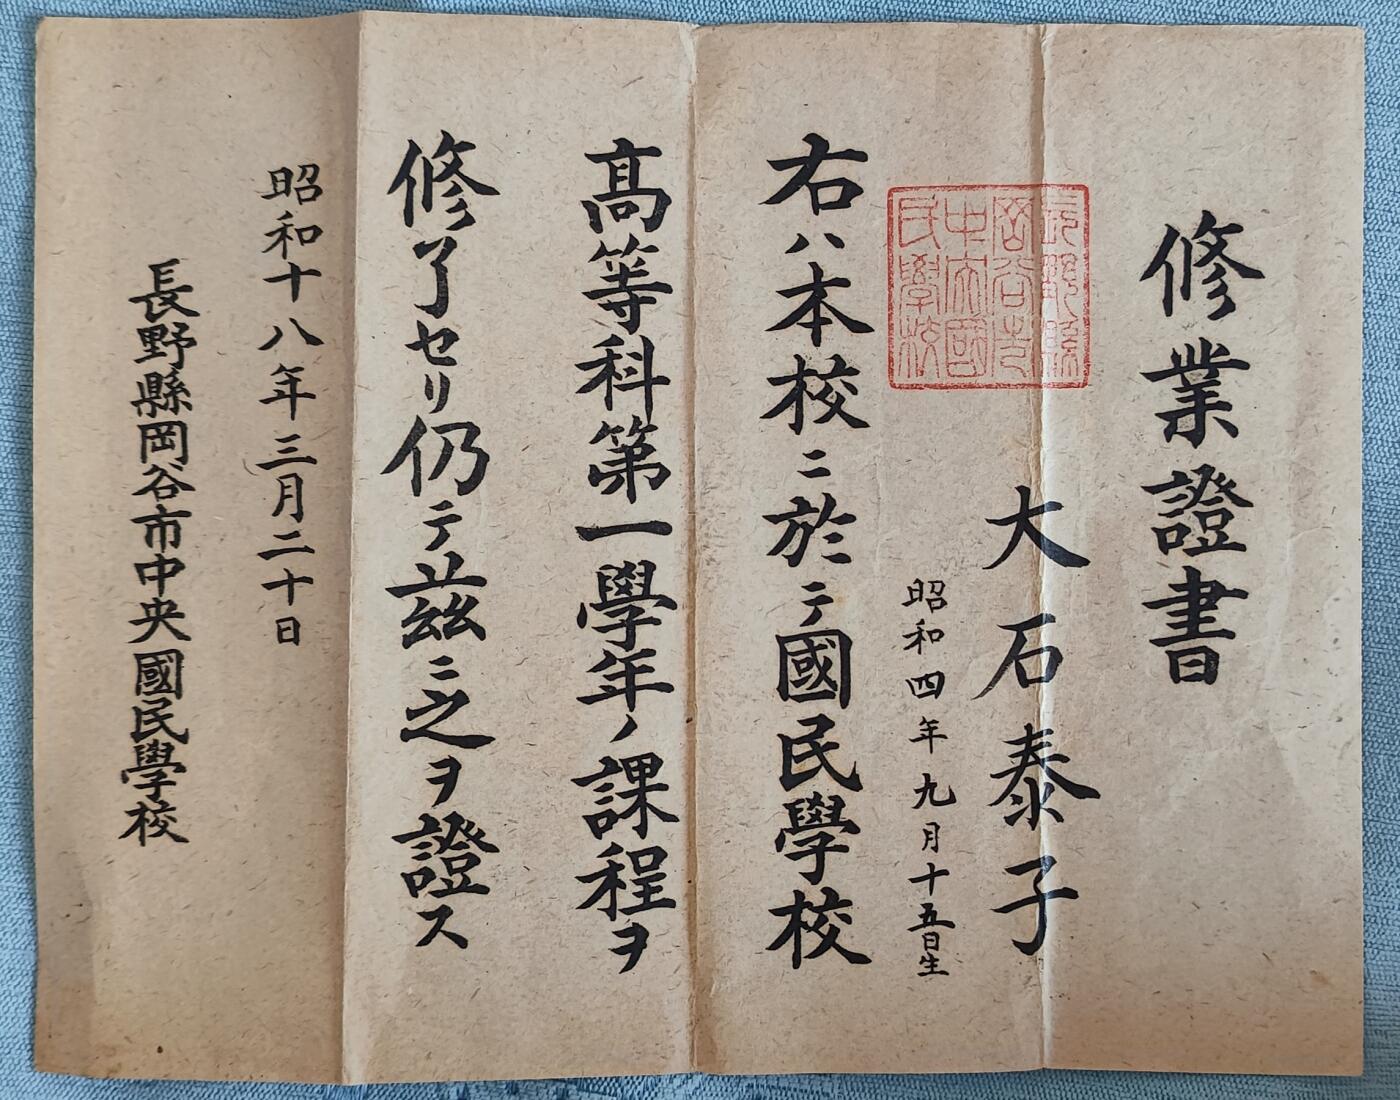 修業證書
長野縣
岡谷市
中央國
民學校
大石泰子
昭和四年九月十五日生
右ハ本校ニ於テ國民學校
高等科第一學年ノ課程ヲ
修了セリ仍テ茲ニ之ヲ證ス
昭和十八年三月二十日
長野縣岡谷市中央國民學校